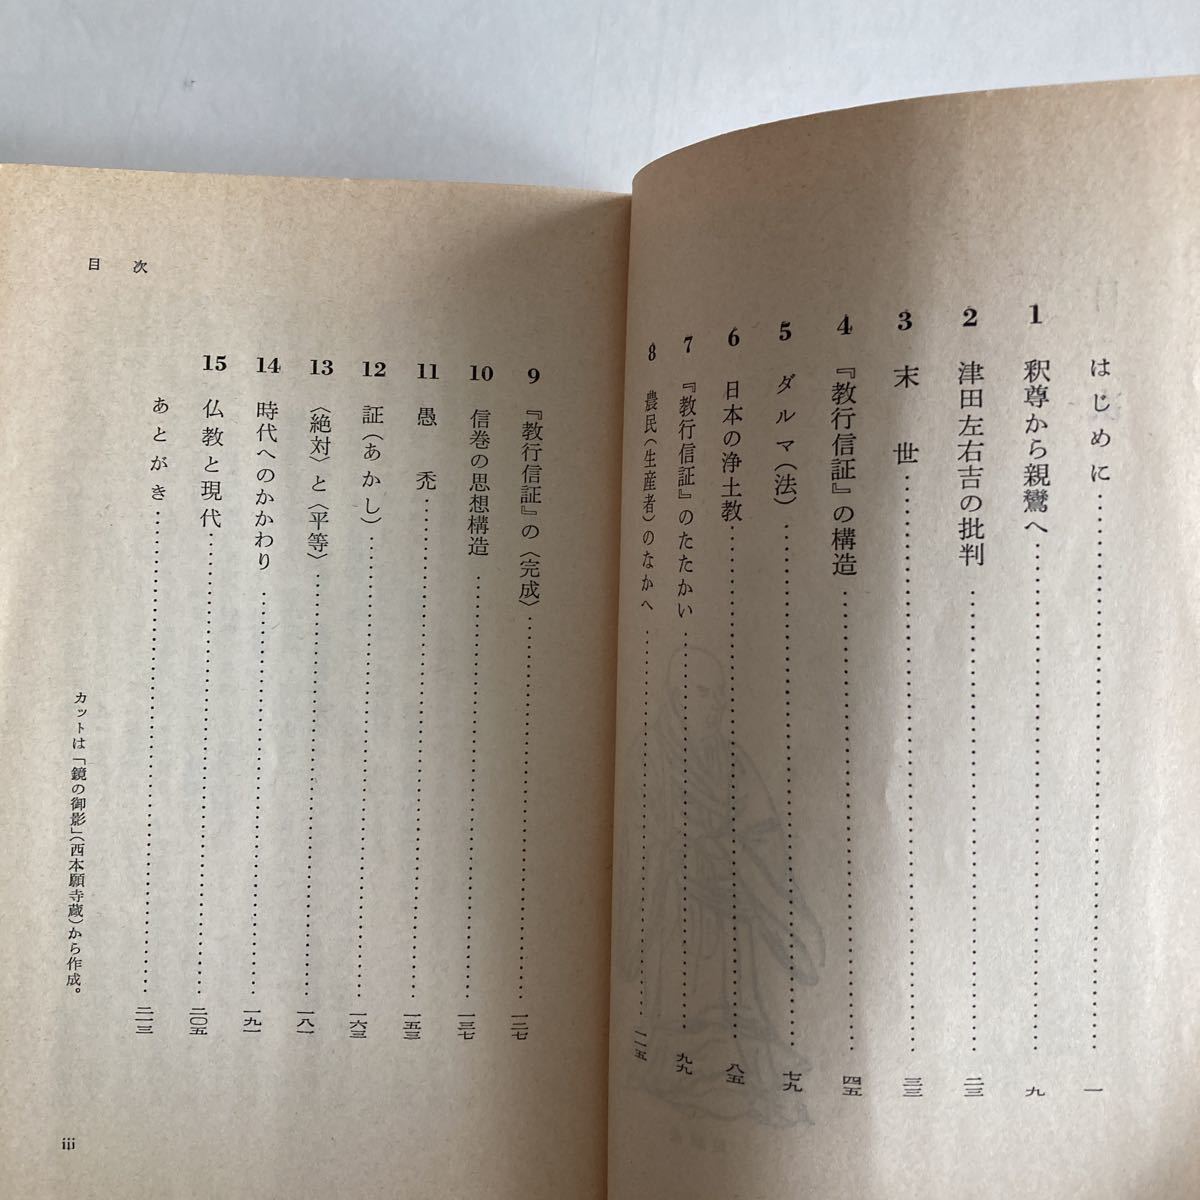 はじめに……………………一
1 釈尊から親鸞へ……………………九
2 津田左右吉の批判……………………二三
3 末世……………………三三
4 『教行信証』の構造……………………四五
5 ダルマ(法)……………………七九
6 日本の浄土教……………………八五
7 『教行信証』のたたかい……………………九九
8 農民(生産者)のなかへ……………………一一五
9 『教行信証』の〈完成〉……………………一二七
10 信巻の思想構造……………………一三七
11 愚禿……………………一五三
12 証(あかし)……………………一六三
13 〈絶対〉と〈平等〉……………………一八一
14 時代へのかかわり……………………一九一
15 仏教と現代……………………二〇五
あとがき……………………二一三
カットは「鏡の御影」(西本願寺蔵)から作成。
目次
iii